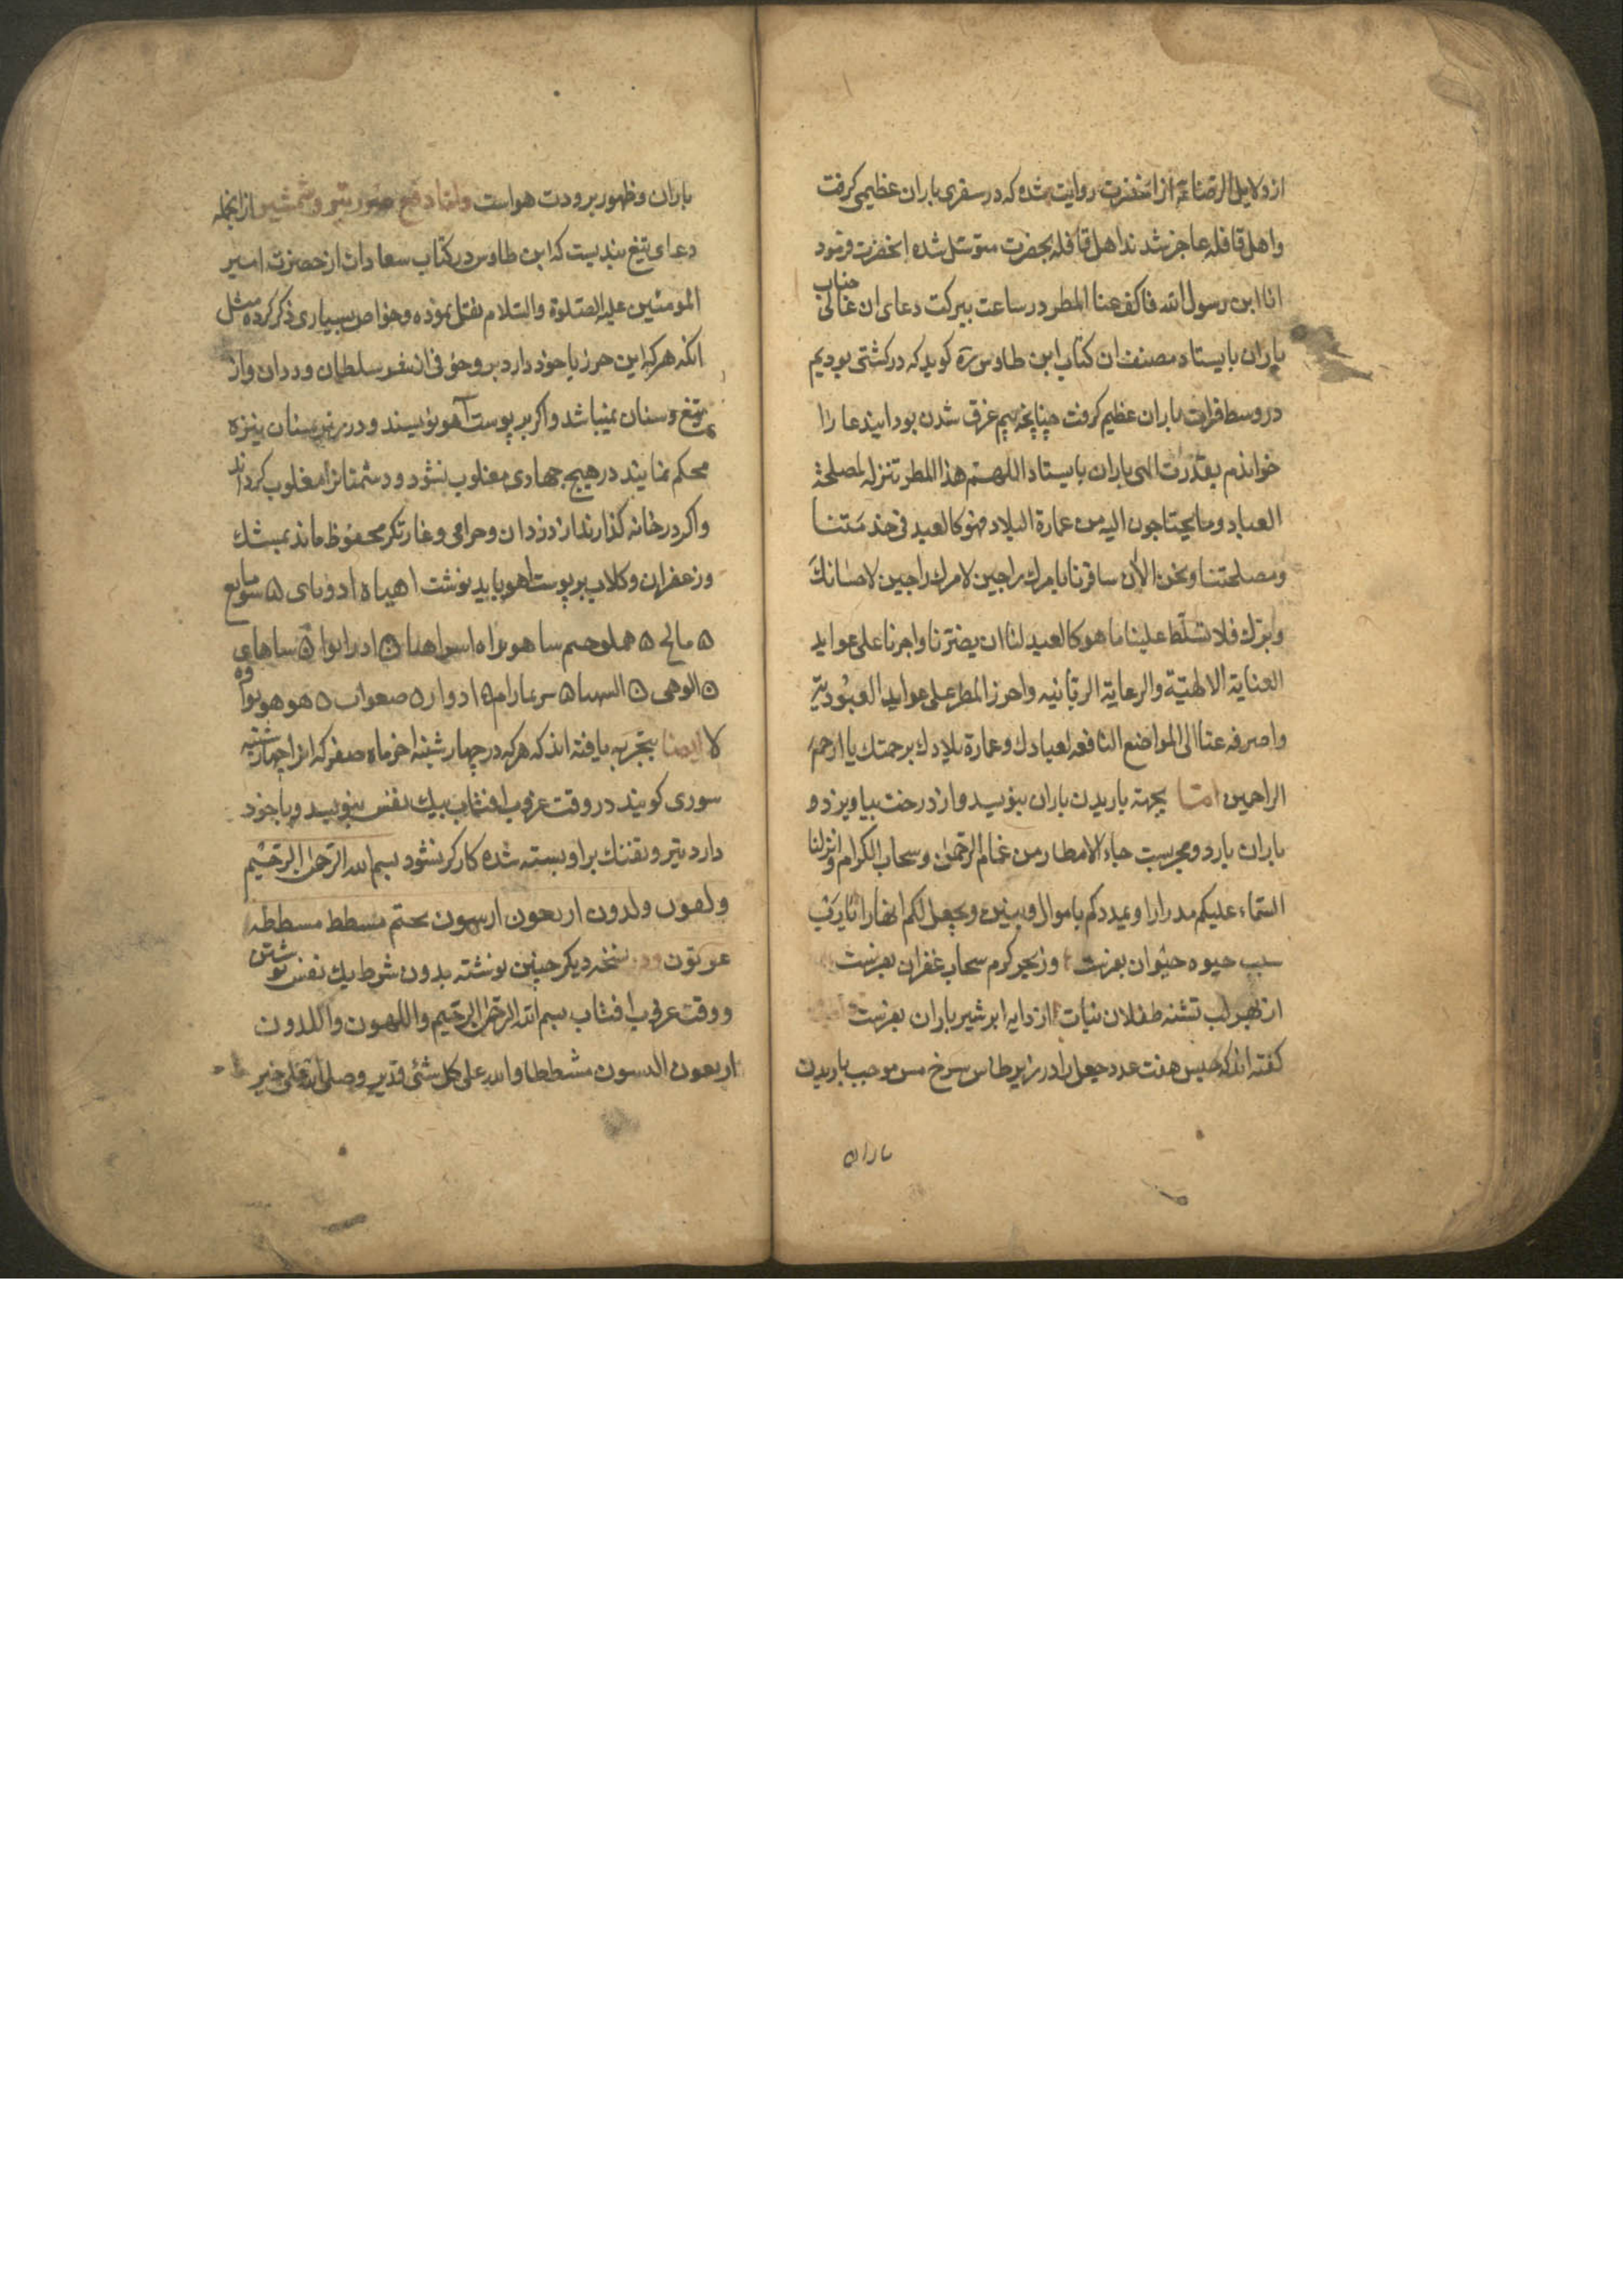 از دلایل الرضا علیه از انحضرت روایت شده که در سفری باران عظیمی کرفت
و اهل قافله عاجز شدند اهل قافله بحضرت متوسل شده انحضرت فرمود
انا ابن رسول الله فاکف عنا المطر در ساعت ببرکت دعای ان عالی جناب
باران بایستاد مصنف ان کتاب ابن طاوس ره کوید که در کشتی بودیم
در وسط فرات باران عظیم کرفت چنانچه بیم غرق شدن بود ایندعا را
خواندم بقدرت الهی باران بایستاد اللهم هذا المطر تنزله لمصلحة
العباد و ما یحتاجون الیه من عمارة البلاد فهو کالعبد فی خدمتنا
و مصلحتنا و نحن الان سافرنا بامرك راجین لامرك راجین لاحسانك
و برك فلا تسلط علینا ما هو کالعبد لنا ان یضرنا و اجرنا علی عواید
العنایة الالهیة و الرعایة الربانیه و اجر المطر علی عواید العبودیة
و اصرفه عنا الی المواضع النافعه لعبادك و عمارة بلادك برحمتك یا ارحم
الراحمین اما بجهة باریدن باران بنویسد و از درخت بیاویزد و
باران بارد و مجربست جاء الامطار من غمام الرحمن و سحاب الکرام و انزلنا
السماء علیکم مدرارا و یمددکم باموال و بنین و یجعل لکم انهارا یارب
سبب حیوه حیوان بفرست وز بحر کرم سحاب غفران بفرست
از بهر لب تشنه طفلان نبات از دایه ابر شیر باران بفرست
کفته اند که حبس هفت عدد جعل را در زیر طاس سرخ مس موجب باریدن
باران
باران و ظهور برودت هواست و اما دفع ضرر تیر و شمشیر از انجمله
دعای تیغ بندیست که ابن طاوس در کتاب سعادات از حضرت امیر
المومنین علیه الصلوة و السلام نقل نموده و خواص بسیاری ذکر کرده مثل
انکه هر که این حرز با خود دارد بر وی خوفی از شر سلطان و ددان و از
تیغ و سنان نمیباشد و اکر بر پوست آهو نویسند و در زیر سنان نیزه
محکم نمایند در هیچ جهادی مغلوب نشود و دشمنانرا مغلوب کرداند
و اکر در خانه کذارند از دزدان و حرامی و غارتکر محفوظ ماند بمشك
و زعفران و کلاب بر پوست اهو باید نوشت اهیاه ادونای ه
ه مالح ه ساهو براه اسراهیا ه ادرابوا ه ساهای
ه الوهی ه ه ادوار ه صعواب ه هو هو
لا ایضا بتجربه یافته اند که هر که در چهارشنبه اخر ماه صفر که انرا چهارشنبه
سوری کویند در وقت غروب افتاب بیك نفس بنویسد و با خود
دارد تیر و تفنك بر او بسته شده کارکر نشود بسم الله الرحمن الرحیم
ولهون ولدون اربعون ارسهون بحتم مسطط مسططه
عوتون و در نسخه دیکر چنین نوشته بدون شرط یك نفس نوشتن
و وقت غروب افتاب بسم الله الرحمن الرحیم و اللهون و اللدون
اربعون الدسون مشططا و الله علی کل شئ قدیر و صلی الله علی خیر